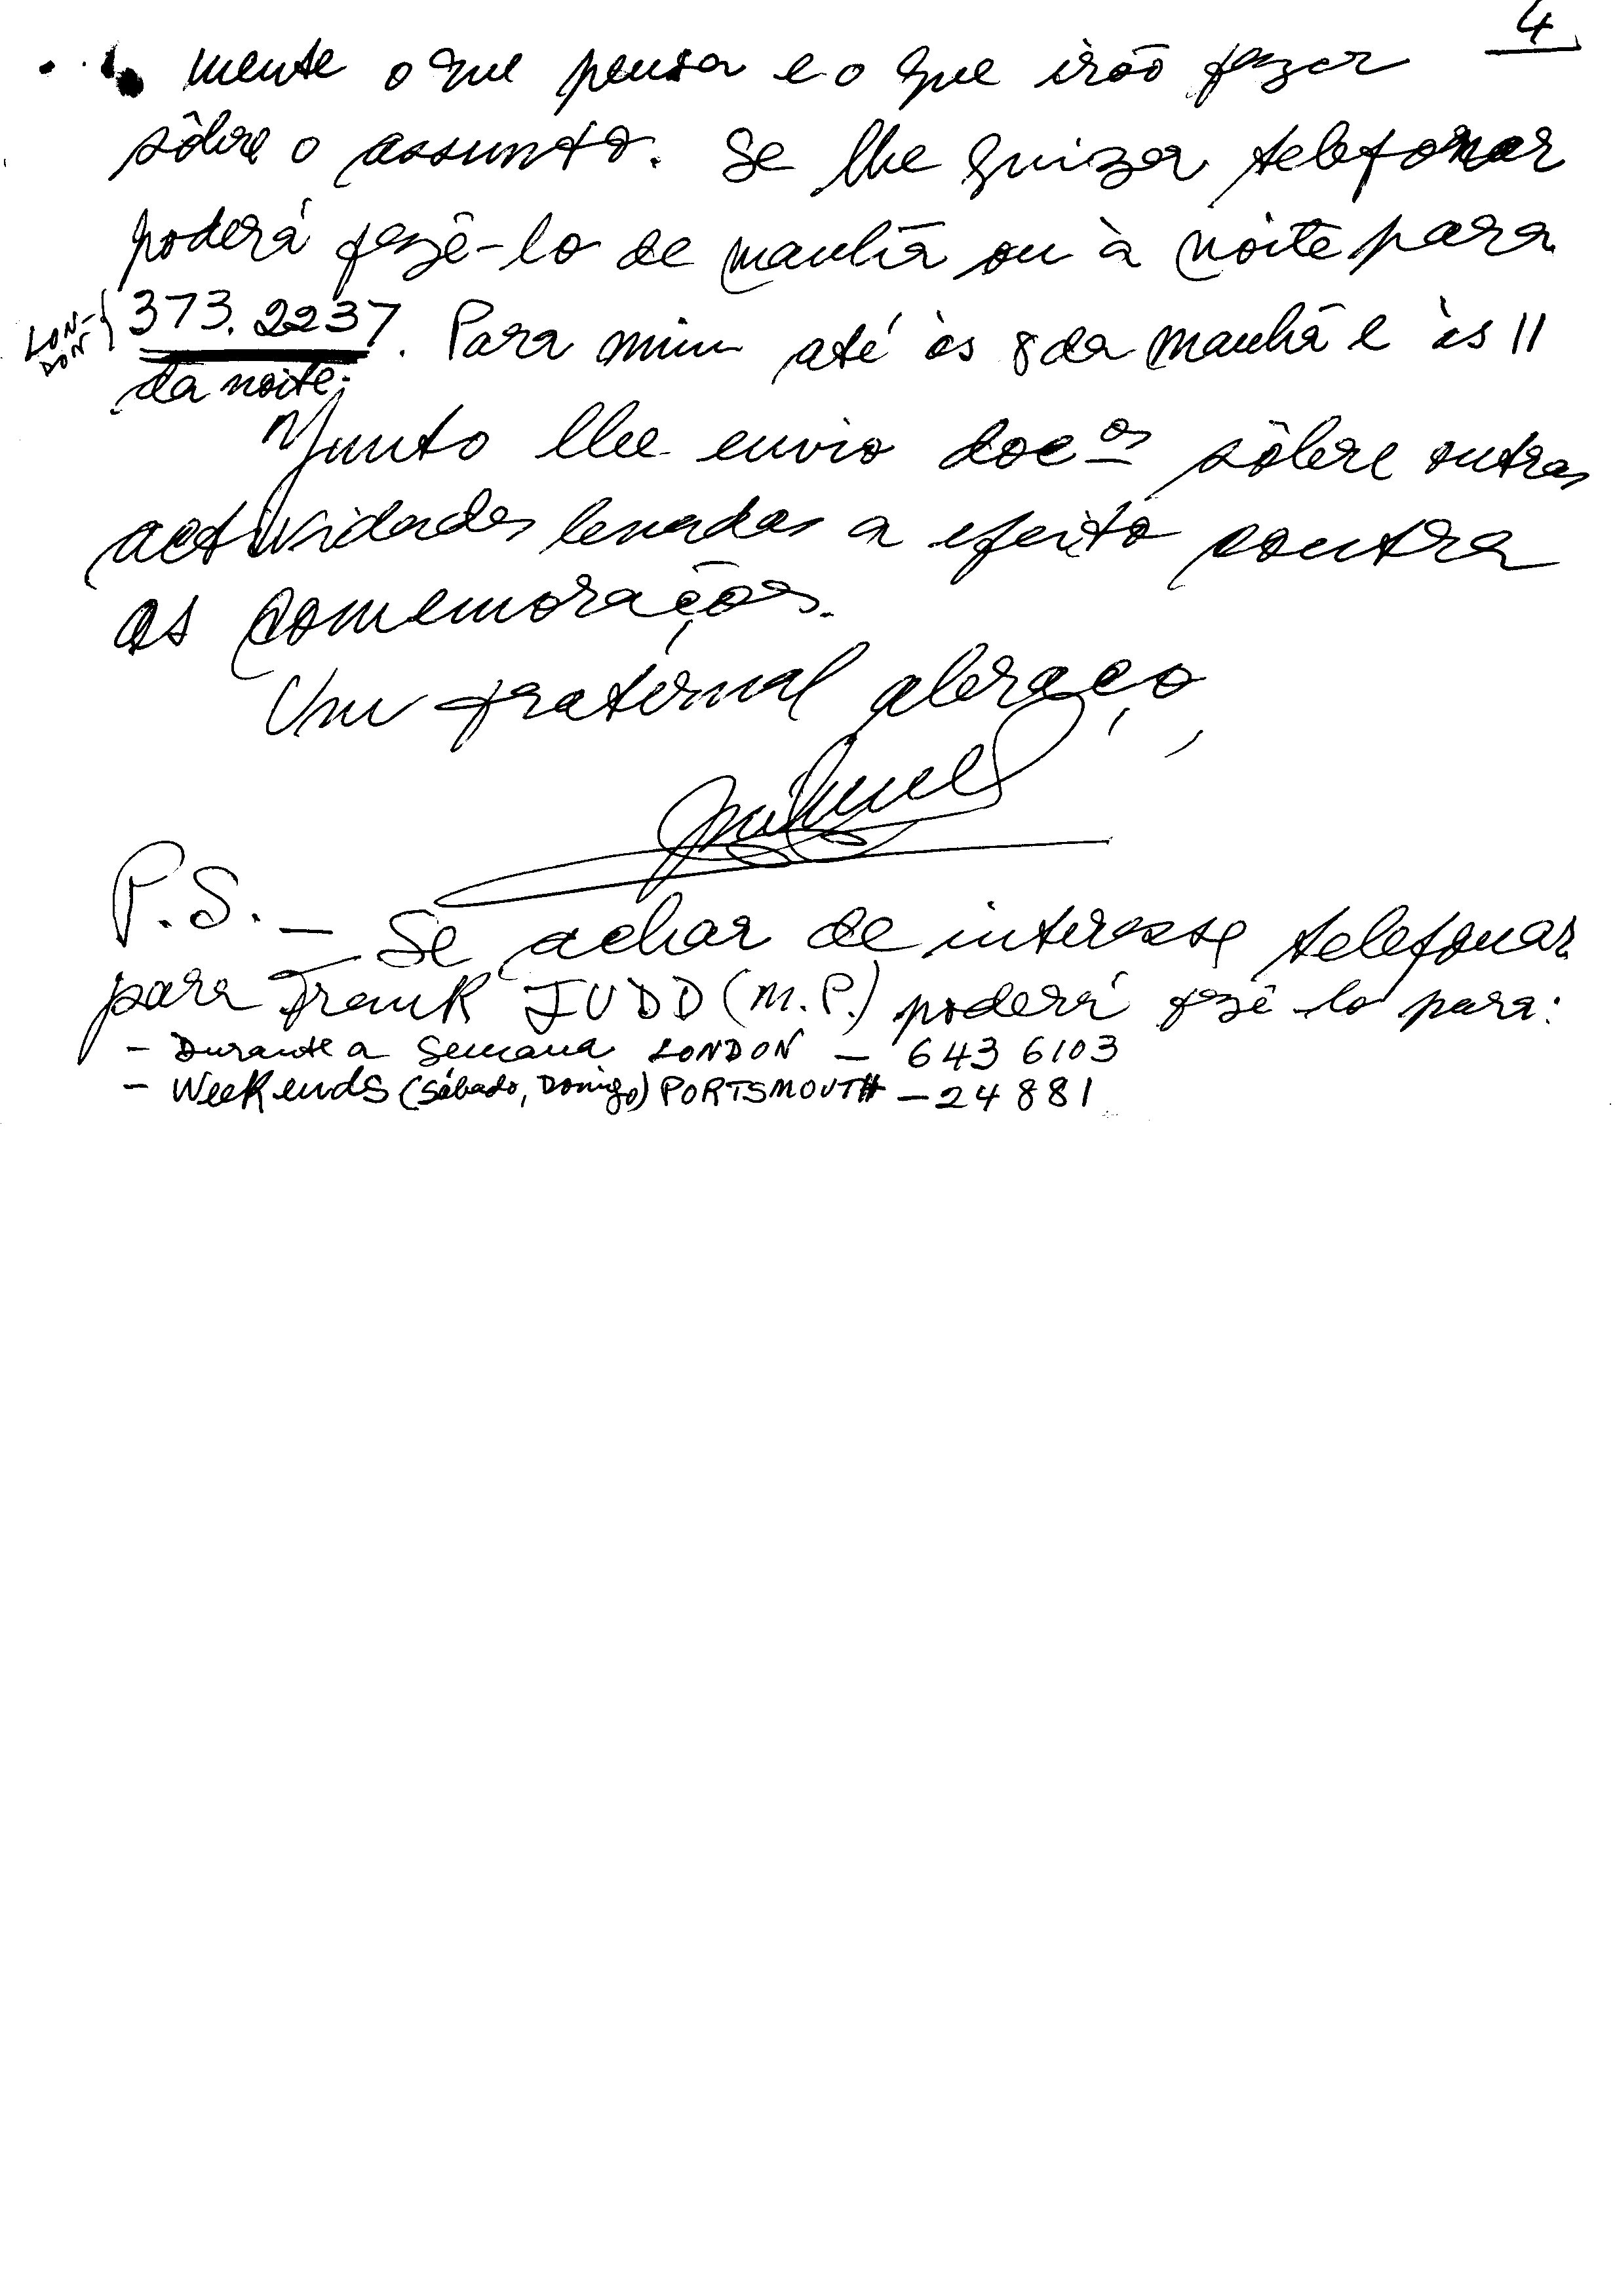 4
mente o que pensa e o que irão fazer
sôbre o assunto. Se lhe quizer telefonar
poderá fazê-lo de manhã ou à noite para
LON-
DON
373.2237. Para mim até às 8 da manhã e às 11
da noite.
Junto lhe envio doc.os sôbre outras
actividades levadas a efeito contra
as comemorações.
Um fraternal abraço,
P.S. — Se achar de interesse telefonar
para Frank JUDD (M.P.) poderá fazê-lo para:
- Durante a semana LONDON — 643 6103
- Week ends (Sábado, Domigo) PORTSMOUTH — 24881